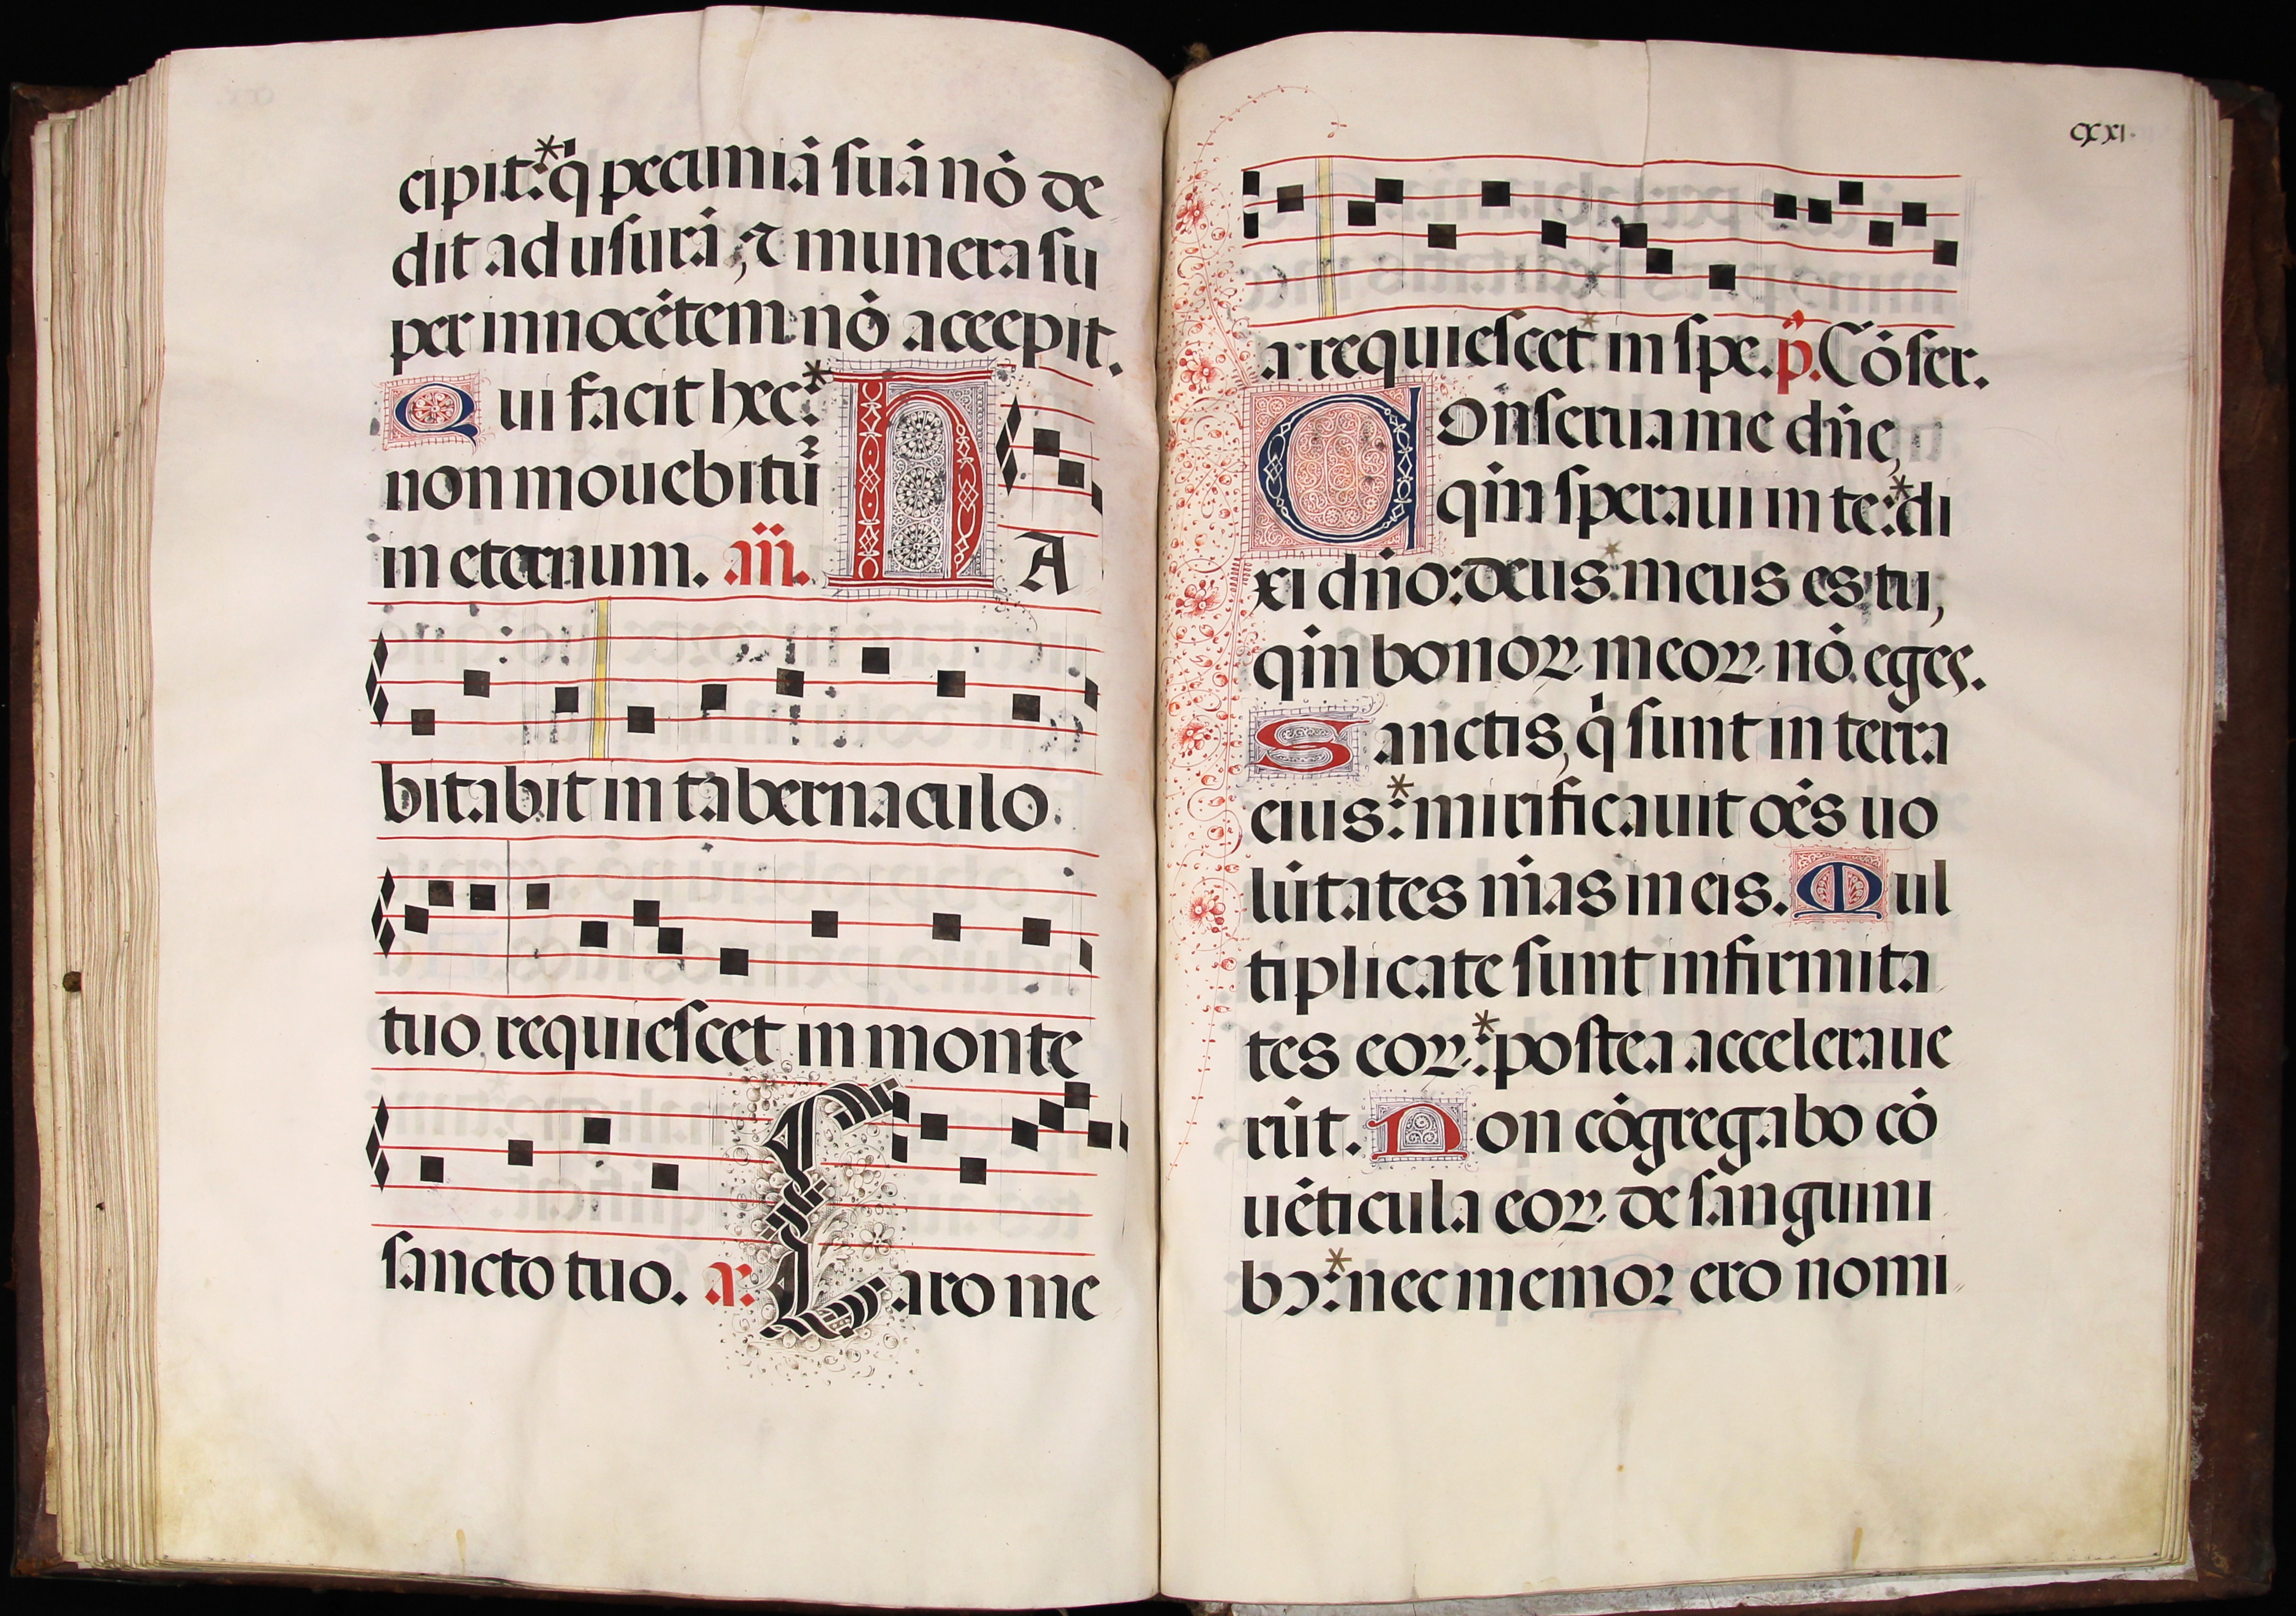 cipit:* q̃ pecuniã suã nõ de
dit ad usurã, ⁊ munera su
per innocẽtem nõ accepit.
Qui facit hec:*
non mouebitur̃
in eternum. añ. HA
bitabit in tabernaculo
tuo requiescet in monte
sancto tuo. a. Caro me
cxxi.
a requiescet in spe. p̃. Cõser.
Conserua me dñe,
qm̃ speraui in te:* di
xi dño: deus meus es tu,
qm̃ bonoꝝ meoꝝ nõ eges.
Sanctis, q̃ sunt in terra
eius:* mirificauit oẽs uo
lũtates m̃as in eis. Mul
tiplicate sunt infirmita
tes eoꝝ:* postea accelera​ue
rũt. Non cõgregabo cõ
uẽticula eoꝝ de sangui​ni
bꝰ:* nec memor ero nomi